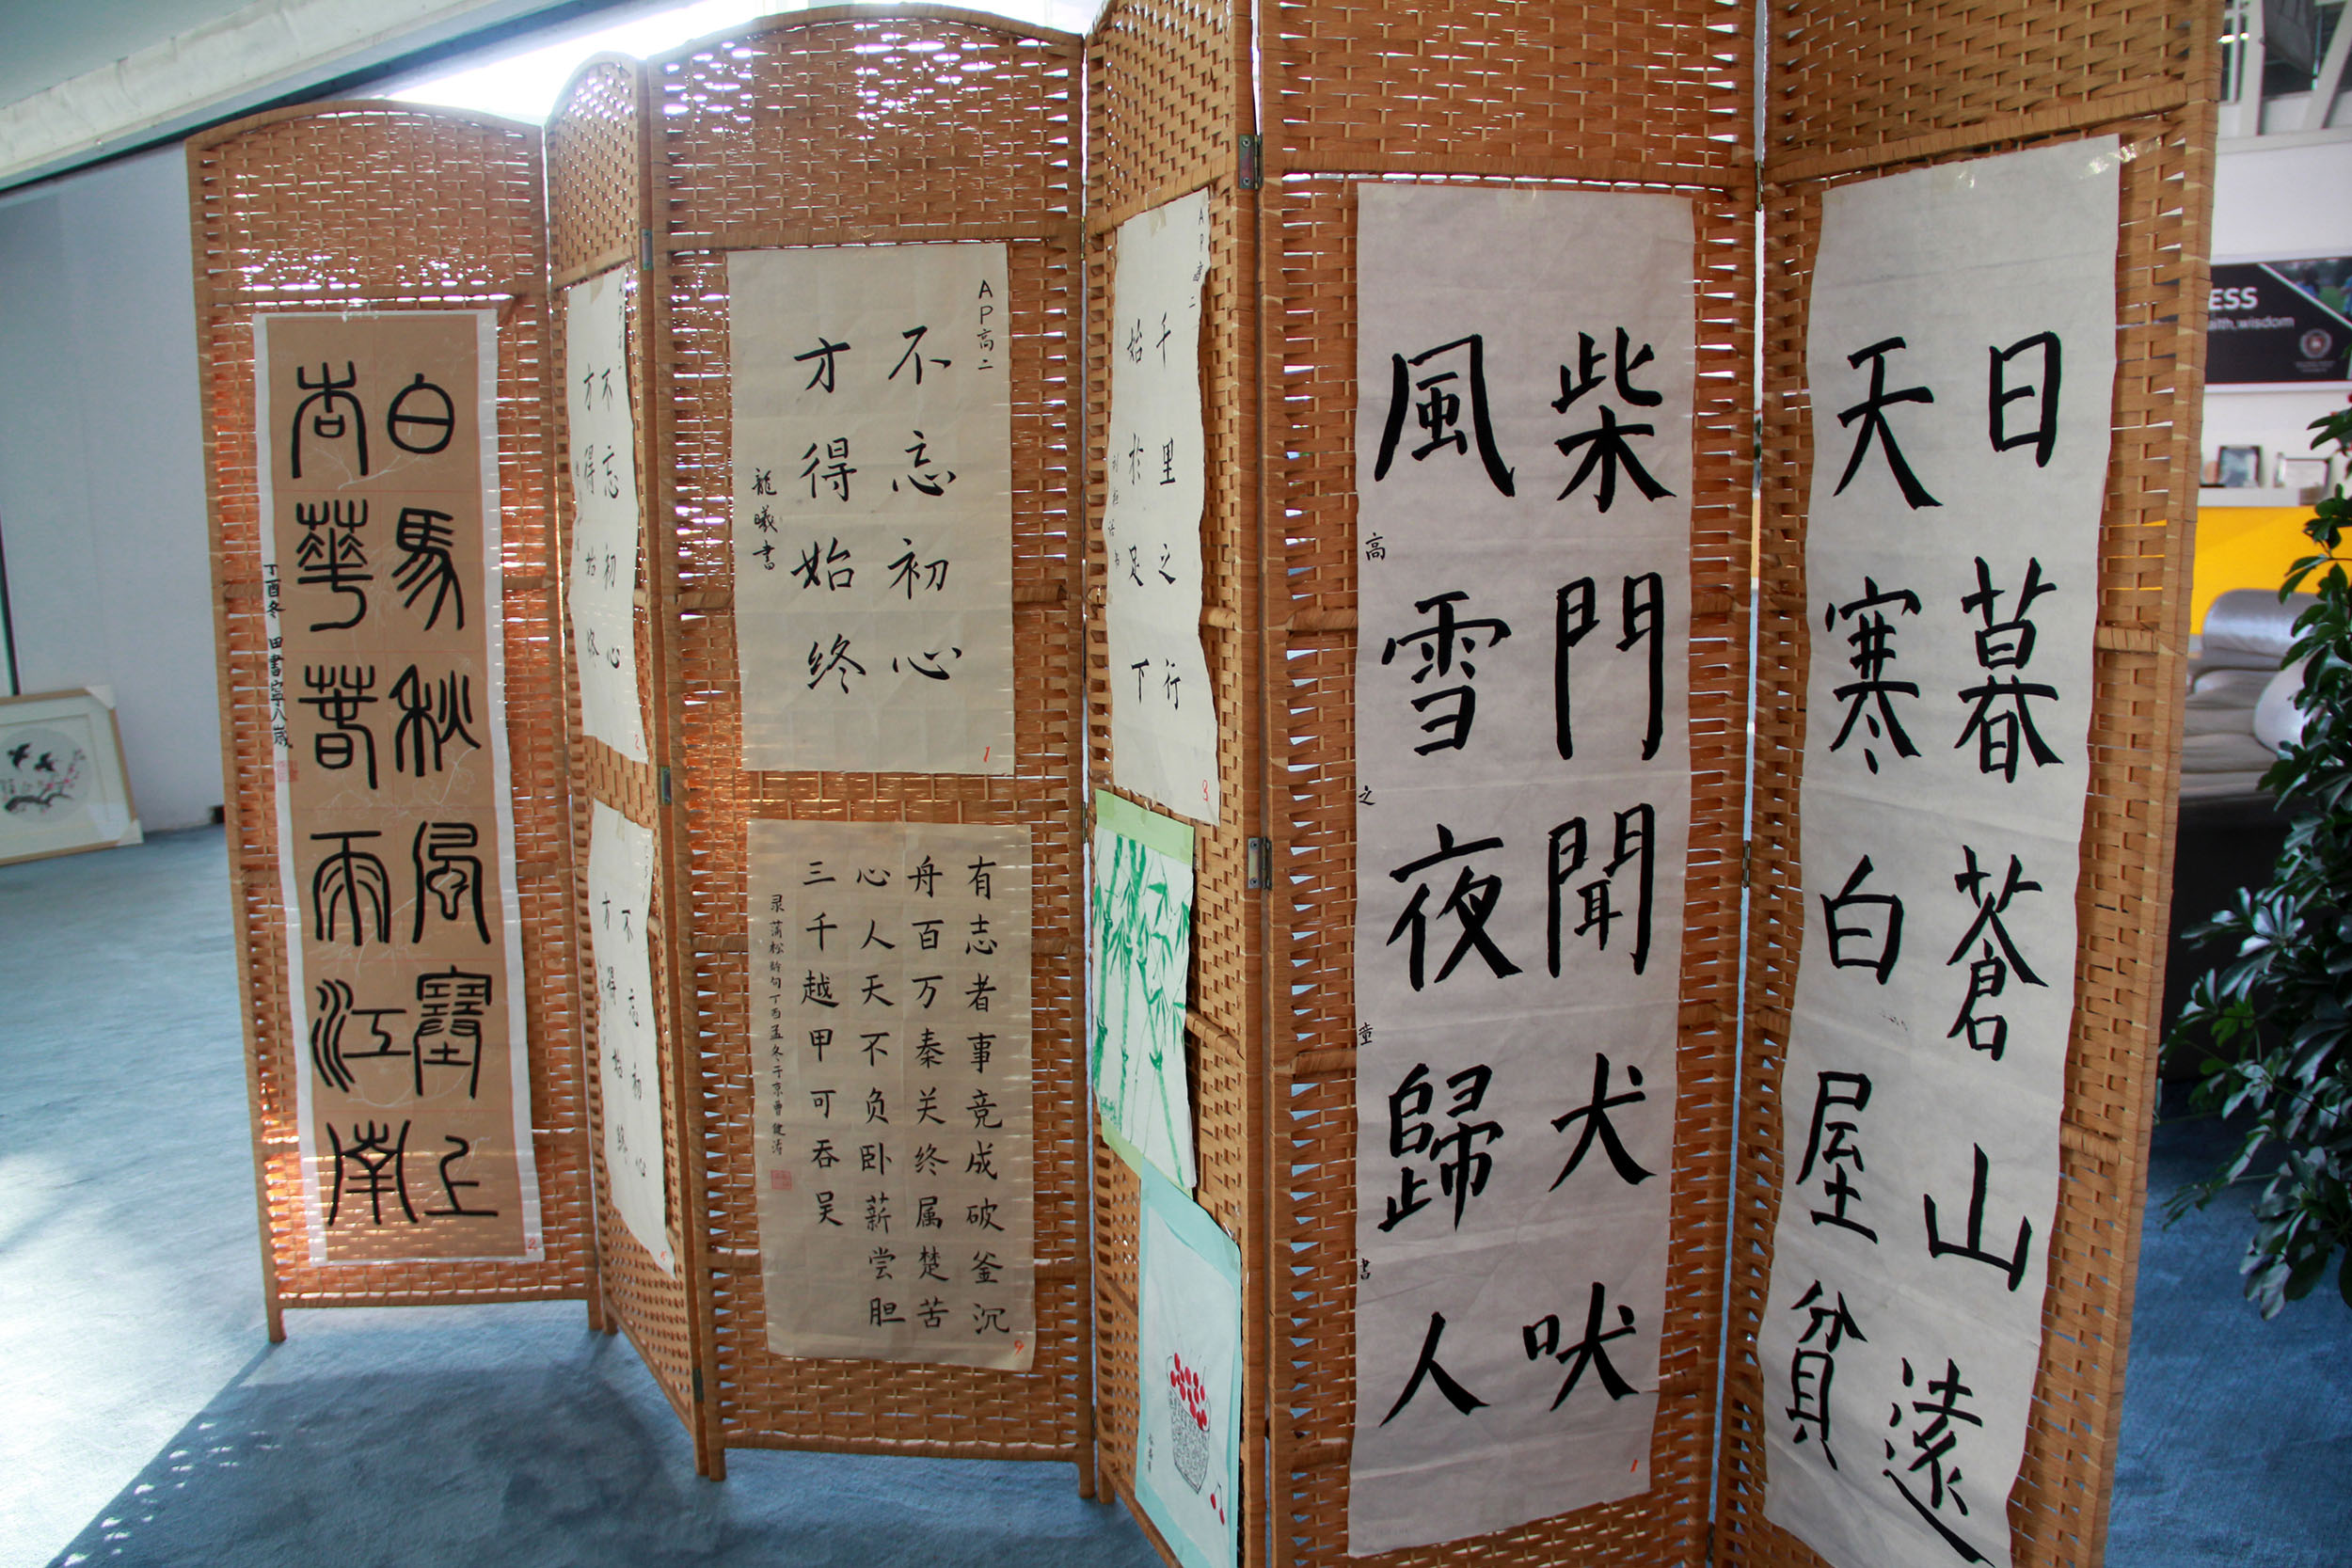 日暮蒼山遠
天寒白屋貧
柴門聞犬吠
風雪夜歸人
高之童書
1
AP高二
千里之行
始於足下
3
AP高二
不忘初心
才得始终
龍曦書
1
有志者事竞成破釜沉
舟百万秦关终属楚苦
心人天不负卧薪尝胆
三千越甲可吞吴
录蒲松龄句丁酉孟冬于京曹健涛
9
不忘初心
才得始终
2
不忘初心
才得始终
白馬秋風塞上
杏華春雨江南
丁酉冬 田書寧八歲
2
ESS
aith.wisdom